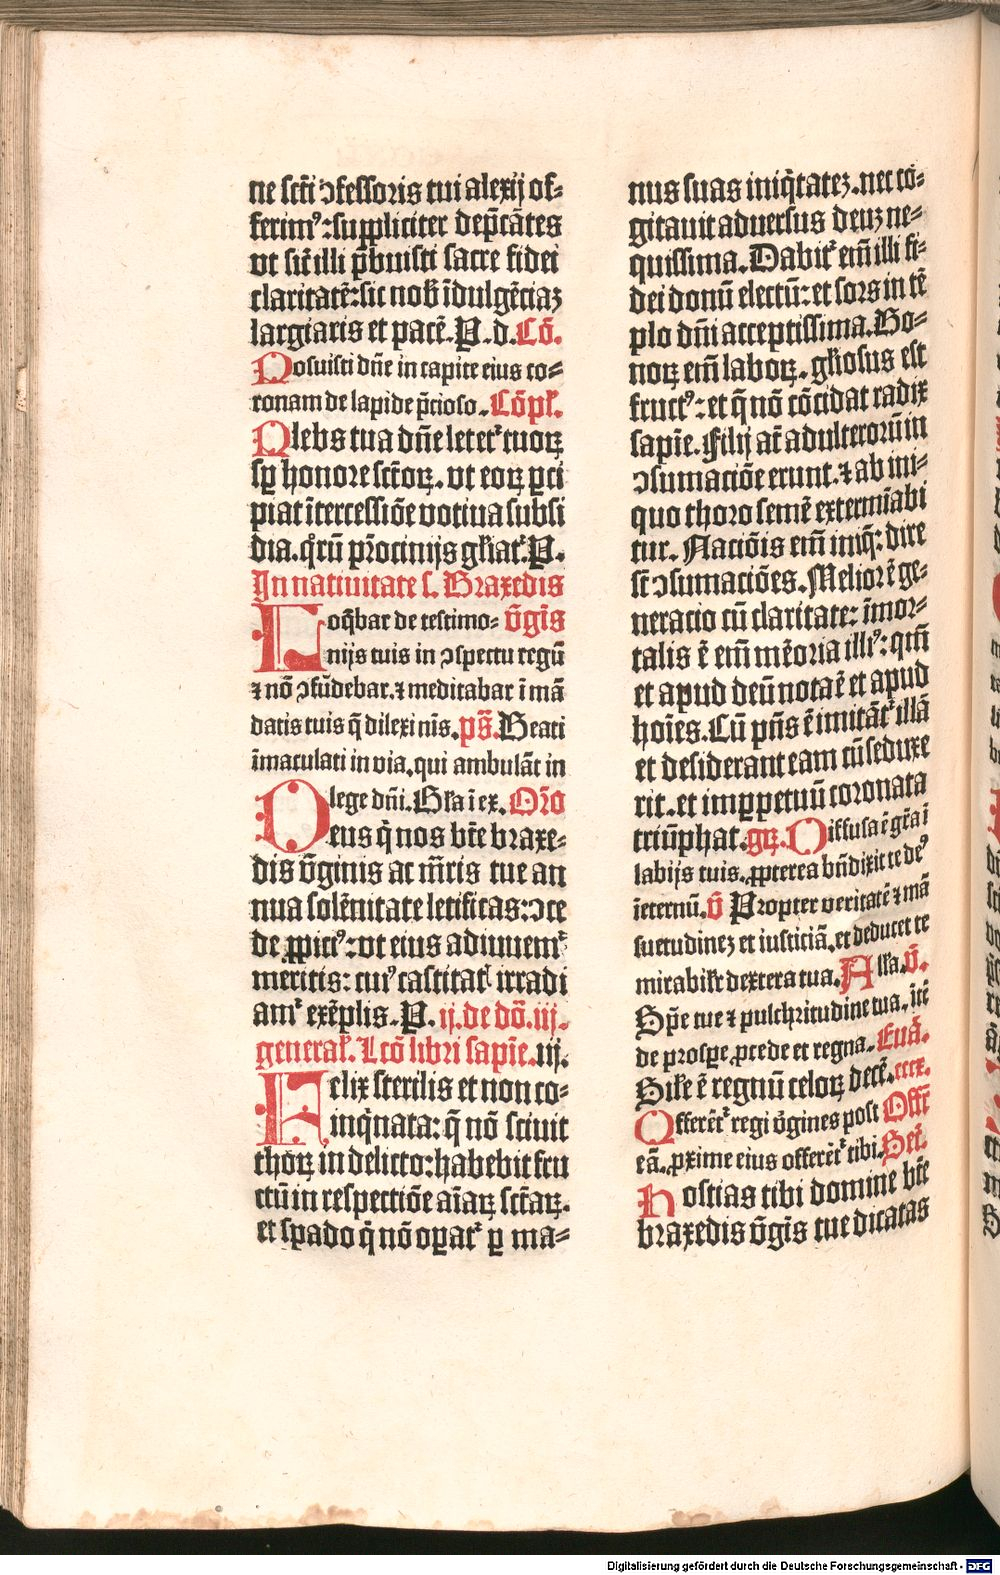 ne sct̄i ↄfessoris tui alexij of⸗
ferim⁹: suppliciter dep̄cātes
vt sic̄ illi p̄buisti sacre fidei
claritatē: sic nob̄ īdulgēciaꝫ
largiaris et pacē. P. d. Cō.
Posuisti dn̄e in capite eius co⸗
ronam de lapide p̄cioso. Cōpl̄.
Plebs tua dn̄e letetᷣ tuoꝝ
sꝑ honore sct̄oꝝ. vt eoꝝ ꝑci
piat ītercessiōe votiua subsi
dia. qͦrū pr̄ocinijs gl̄iatᷣ. P.
In natiuitate s. Braxedis
Loq̄bar de testimo⸗ v̄gīs
nijs tuis in ↄspectu regū
⁊ nō ↄfūdebar. ⁊ meditabar ī mā
datis tuis q̄ dilexi nīs. pš. Beati
īmaculati in via. qui ambulāt in
lege dn̄i. Gl̄a ī ex. Or̄o
Deus qͥ nos bt̄e braxe⸗
dis v̄ginis ac mr̄tis tue an
nua solēnitate letificas: ↄce
de ꝓpiciᷤ: vt eius adiuuemᷣ
meritis: cuiᷤ castitatꝭ irradi
amᷣ exēplis. P. ij. de dō. iij.
general̄. Lcō libri sapīe. iij.
Felix sterilis et non co⸗
inqͥnata: q̄ nō sciuit
thoꝝ in delicto: habebit fru
ctū in respectiōe aīaꝝ sct̄aꝝ.
et spado qͥ nō oꝑatᷣ ꝑ ma⸗
nus suas iniqͥtateꝫ. nec cō⸗
gitauit aduersus deuꝫ ne⸗
quissima. Dabitᷣ em̄ illi fi⸗
dei donū electū: et sors in tē
plo dn̄i acceptissima. Bo⸗
noꝝ em̄ laboꝝ. gl̄iosus est
fruct⁹: et q̄ nō cōcidat radix
sapīe. Filij at̄ adulterorū in
ↄsumaciōe erunt. ⁊ ab ini⸗
quo thoro semē extermīabi
tur. Naciōis em̄ iniq̄: dire
st̄ ↄsumaciōes. Melior ē ge⸗
neracio cū claritate: īmor⸗
talis ē em̄ mēoria illi⁹: qm̄
et apud deū nota ē et apud
hoīes. Cū pn̄s ē imitāt̄ᷣ illā
et desiderant eam cū se duxe
rit. et imꝑpetuū coronata
triūphat. gꝝ. Diffusa ē gr̄a ī
labijs tuis. ꝓpterea bn̄dixit te de⁹
īeternū. v̄ Propter veritatē ⁊ mā
suetudineꝫ et iusticiā. et deducet te
mirabilr̄ dextera tua. Alla. v̄.
Spē tue ⁊ pulchritudine tua. ītē
de prosꝑe ꝓcede et regna. Euā.
Sil̄e ē regnū celoꝝ decē. cccx.
Offerēt̄ᷣ regi v̄gines post Offr̄
eā. ꝓxime eius offerēt̄ᷣ tibi. Sec̄.
Hostias tibi domine bt̄e
braxedis v̄gīs tue dicatas